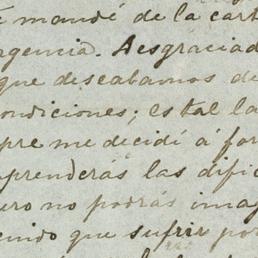 é mandé de la cart
rgencia. Desgraciad
que deseabamos de
ondiciones; es tal la
pre me decidí á for
prenderás las dific
ero no podrás imag
enido que sufrir por